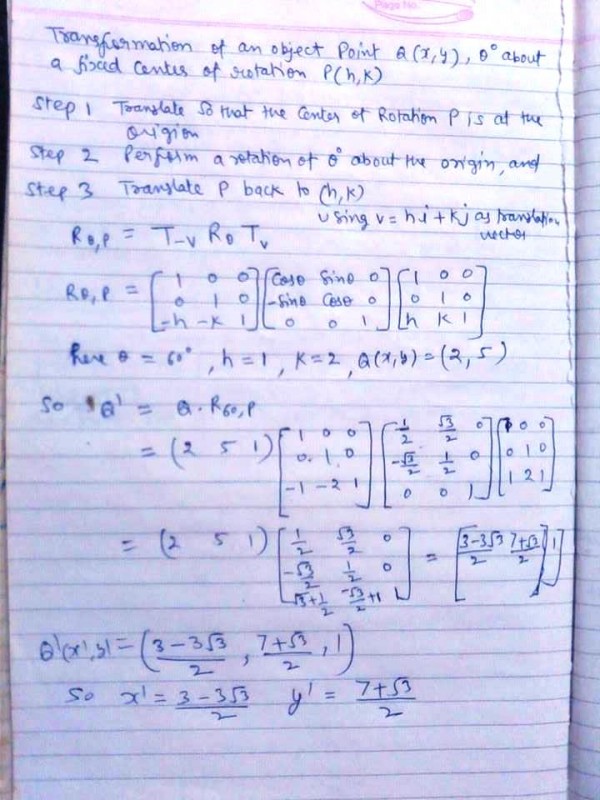 Page No.
Transformation of an object Point Q(x,y), θ° about
a fixed Center of rotation P(h,k)
Step 1 Translate so that the Center of Rotation P is at the
Origion
Step 2 Perform a rotation of θ° about the origin, and
Step 3 Translate P back to (h,k)
using v = hi + kj as translation
vector
Rθ,P = T-v Rθ Tv
Rθ,P = [1 0 0] [cosθ sinθ 0] [1 0 0]
[0 1 0] [-sinθ cosθ 0] [0 1 0]
[-h -k 1] [0 0 1] [h k 1]
here θ = 60°, h=1, k=2, Q(x,y) = (2,5)
So Q' = Q.R60,P
= (2 5 1) [1 0 0] [1/2 √3/2 0] [1 0 0]
[0 1 0] [-√3/2 1/2 0] [0 1 0]
[-1 -2 1] [0 0 1] [1 2 1]
= (2 5 1) [1/2 √3/2 0] = [3-3√3/2 7+√3/2 1]
[-√3/2 1/2 0]
[√3+1/2 -√3/2+1 1]
Q'(x',y') = (3-3√3/2, 7+√3/2, 1)
So x' = 3-3√3/2 y' = 7+√3/2